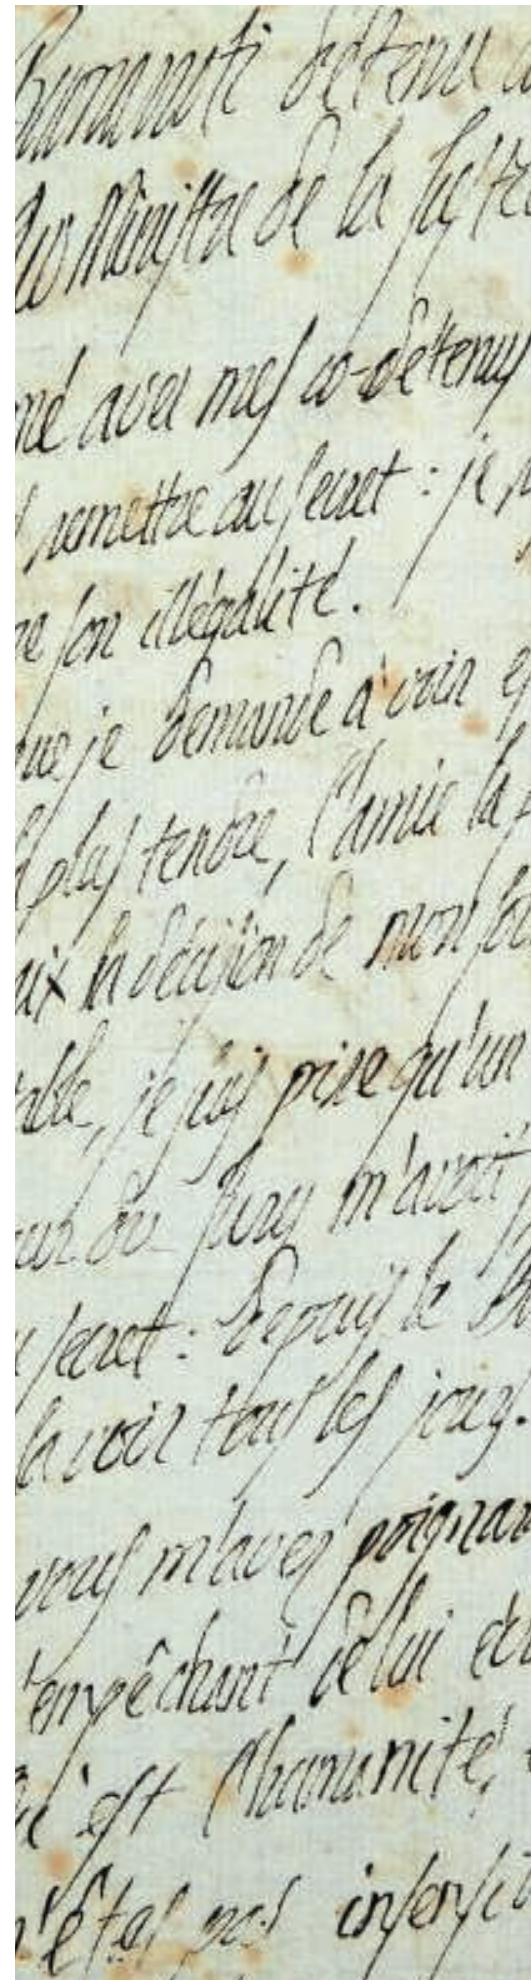 détenu
Ministre de la Justi
né avec mes co-détenus
remettre au secret : je p
re son illégalité.
que je demande à voir e
plus tendre, l'amie la p
aix la décision de mon so
table, je suis pire qu'un
eur du jury m'avait
u secret : depuis le
la voir tous les jours.
vous m'avez poignar
'empêchant de lui écr
où est l'humanité,
n'êtes pas insensib